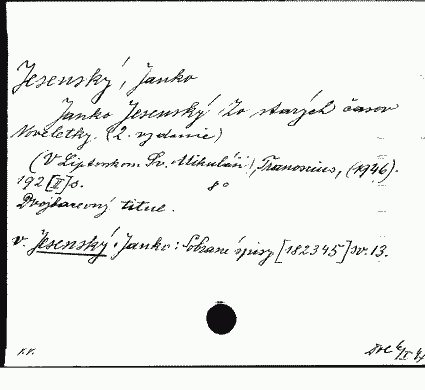 Jesenský, Janko
Janko Jesenský: Zo starých časov
Noveletky. (2. vydanie)
(V Liptovskom Sv. Mikuláši), Tranoscius, (1946).
192 [II] s. 8°
Dvojbarevný titul.
v. Jesenský, Janko: Sobrané spisy [182345] sv. 13.